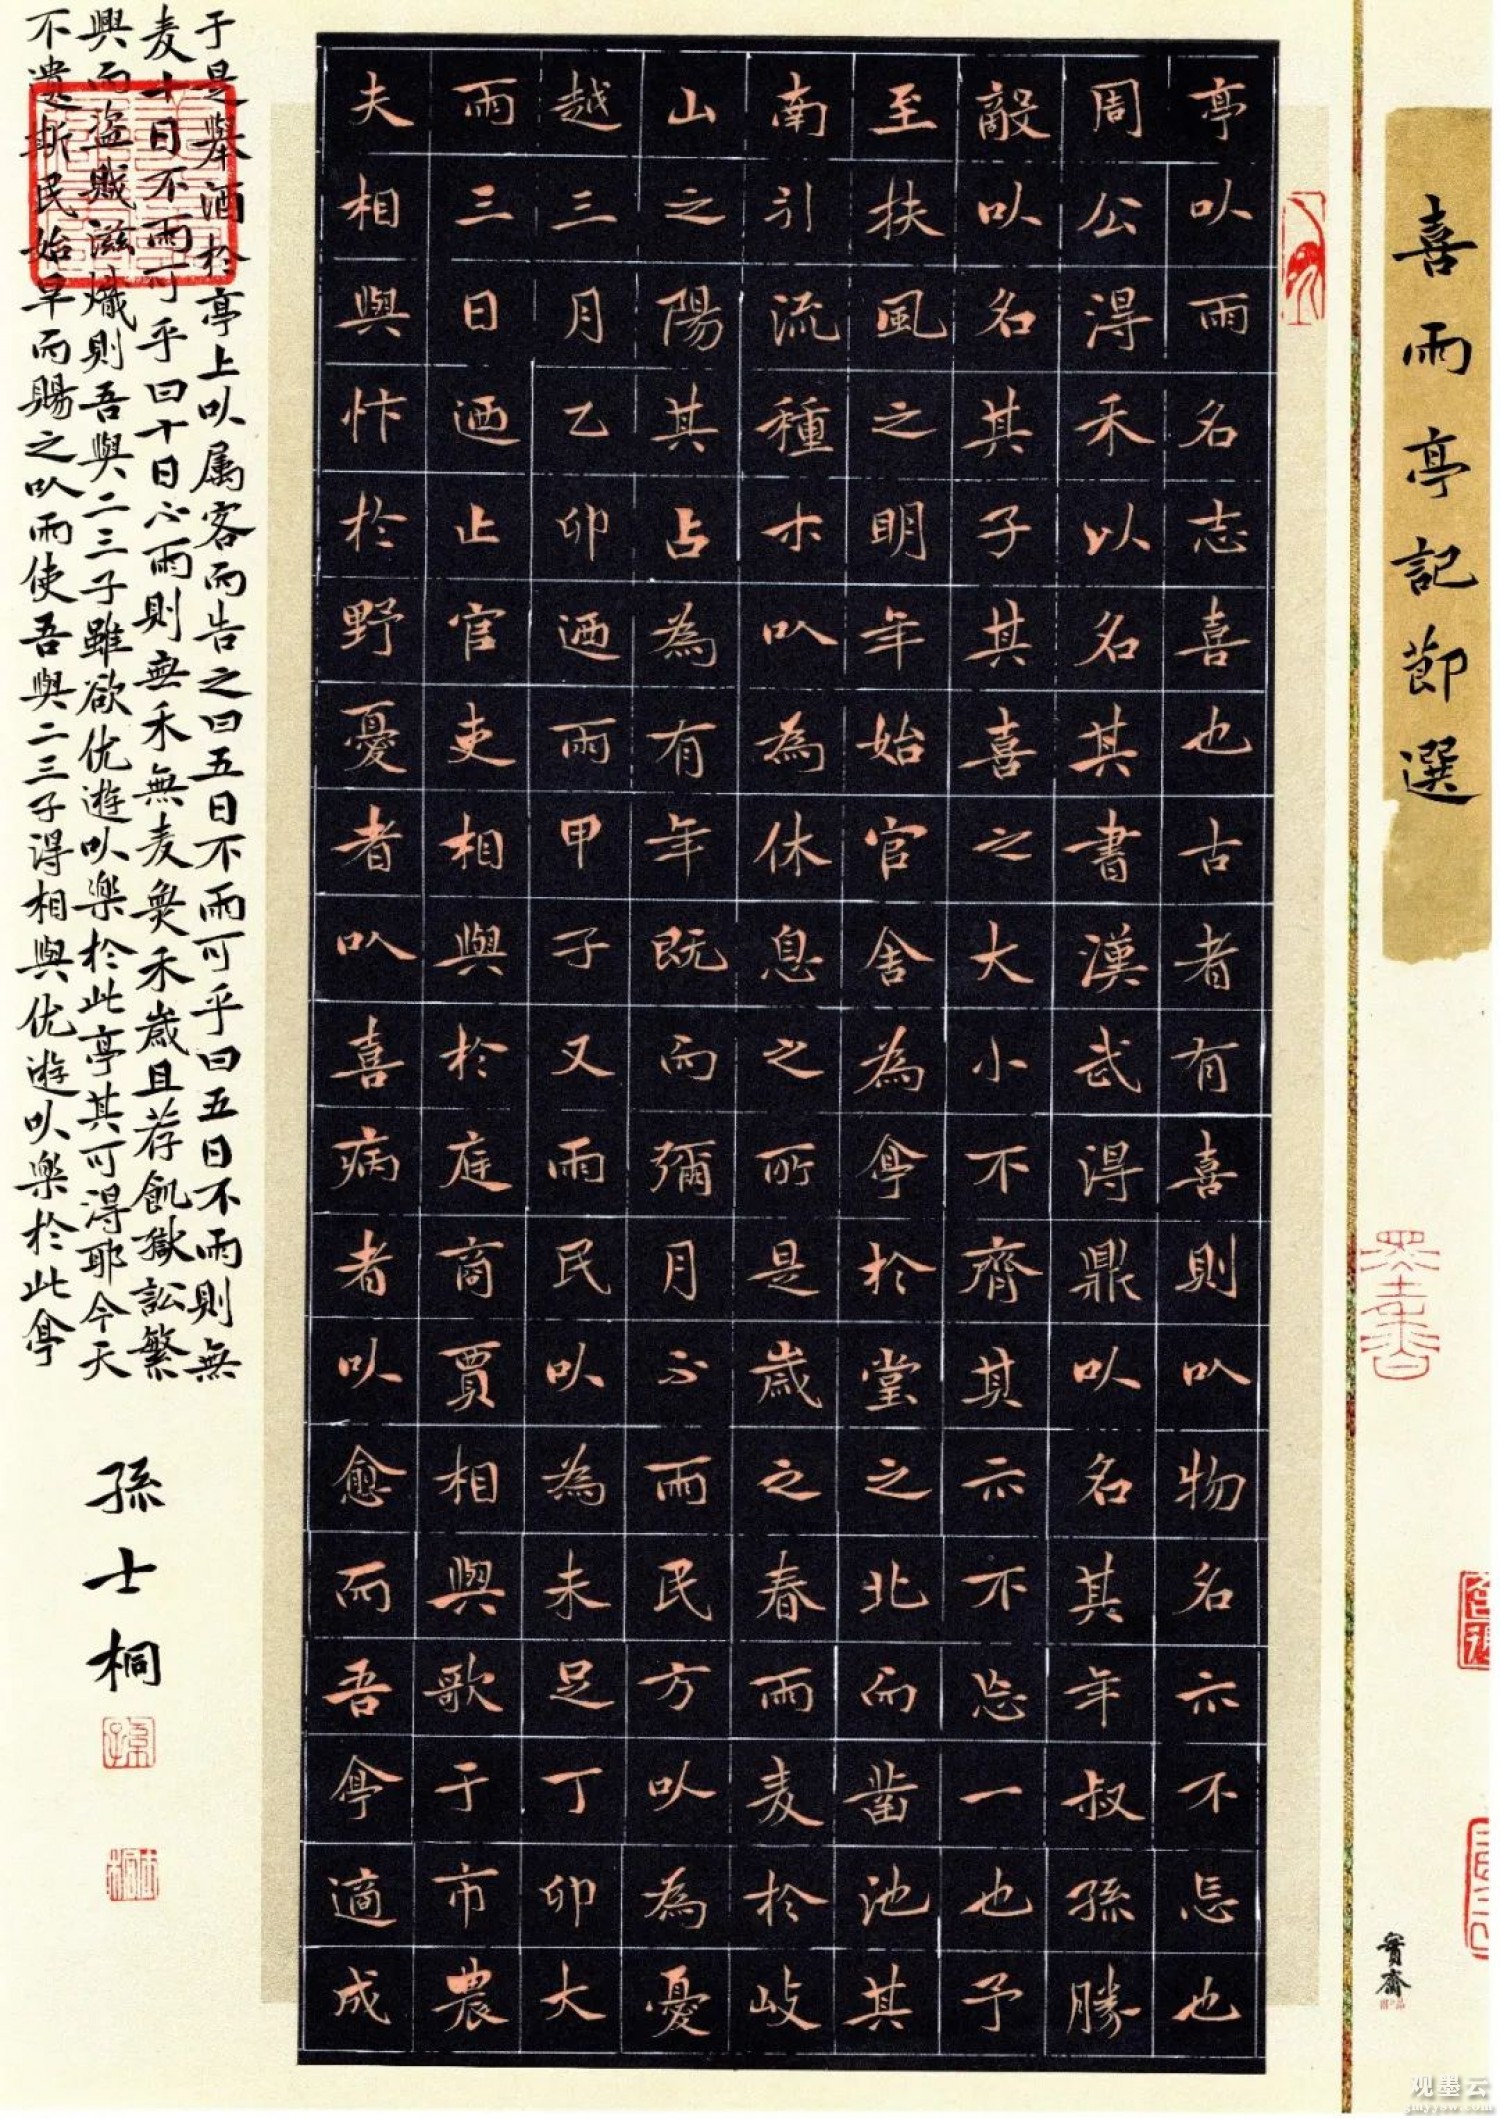 喜雨亭記節選
亭以雨名志喜也古者有喜則以物名示不忘也
周公得禾以名其書漢武得鼎以名其年叔孫勝
敵以名其子其喜之大小不齊其示不忘一也予
至扶風之明年始官舍為亭於堂之北而凿池其
南引流種木以為休息之所是歲之春雨麦於岐
山之陽其占為有年既而彌月不雨民方以為憂
越三月乙卯迺雨甲子又雨民以為未足丁卯大
雨三日迺止官吏相與於庭商賈相與歌于市農
夫相與忭於野憂者以喜病者以愈而吾亭適成
于是舉酒於亭上以属客而告之曰五日不雨可乎曰五日不雨則無
麦十日不雨可乎曰十日不雨則無禾無麦無禾歲且荐飢獄訟繁
興而盗賊滋熾則吾與二三子雖欲优遊以樂於此亭其可得耶今天
不遗斯民始旱而賜之以雨使吾與二三子得相與优遊以樂於此亭
孫士桐
墨香
观墨云